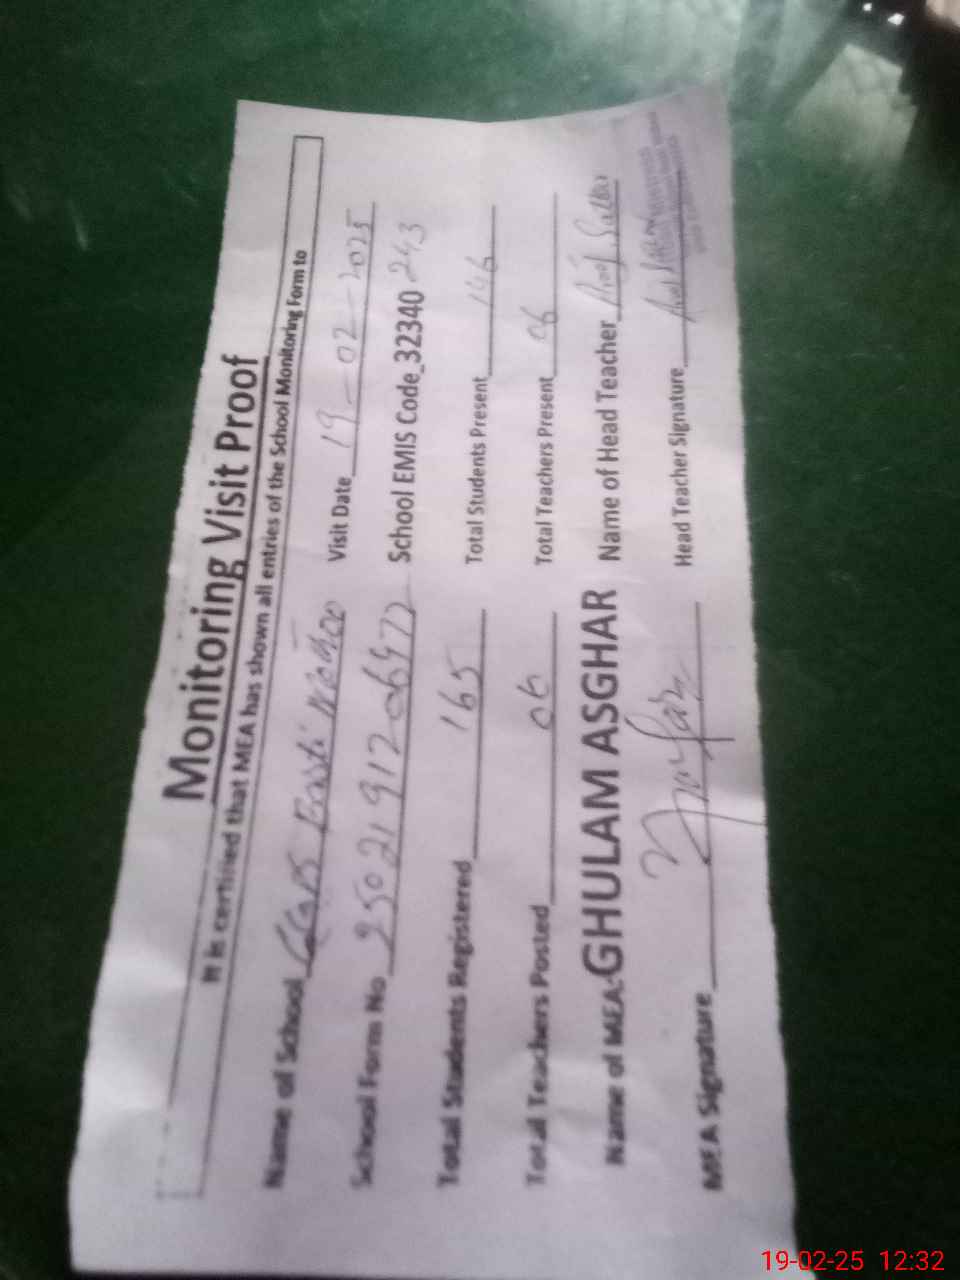 Monitoring Visit Proof
It is certified that MEA has shown all entries of the School Monitoring Form to
Name of School Visit Date 19-02-2025
School Form No School EMIS Code 32340 243
Total Students Registered 165 Total Students Present 146
Total Teachers Posted 06 Total Teachers Present 06
Name of MEA:-GHULAM ASGHAR Name of Head Teacher
MEA Signature Head Teacher Signature
19-02-25 12:32